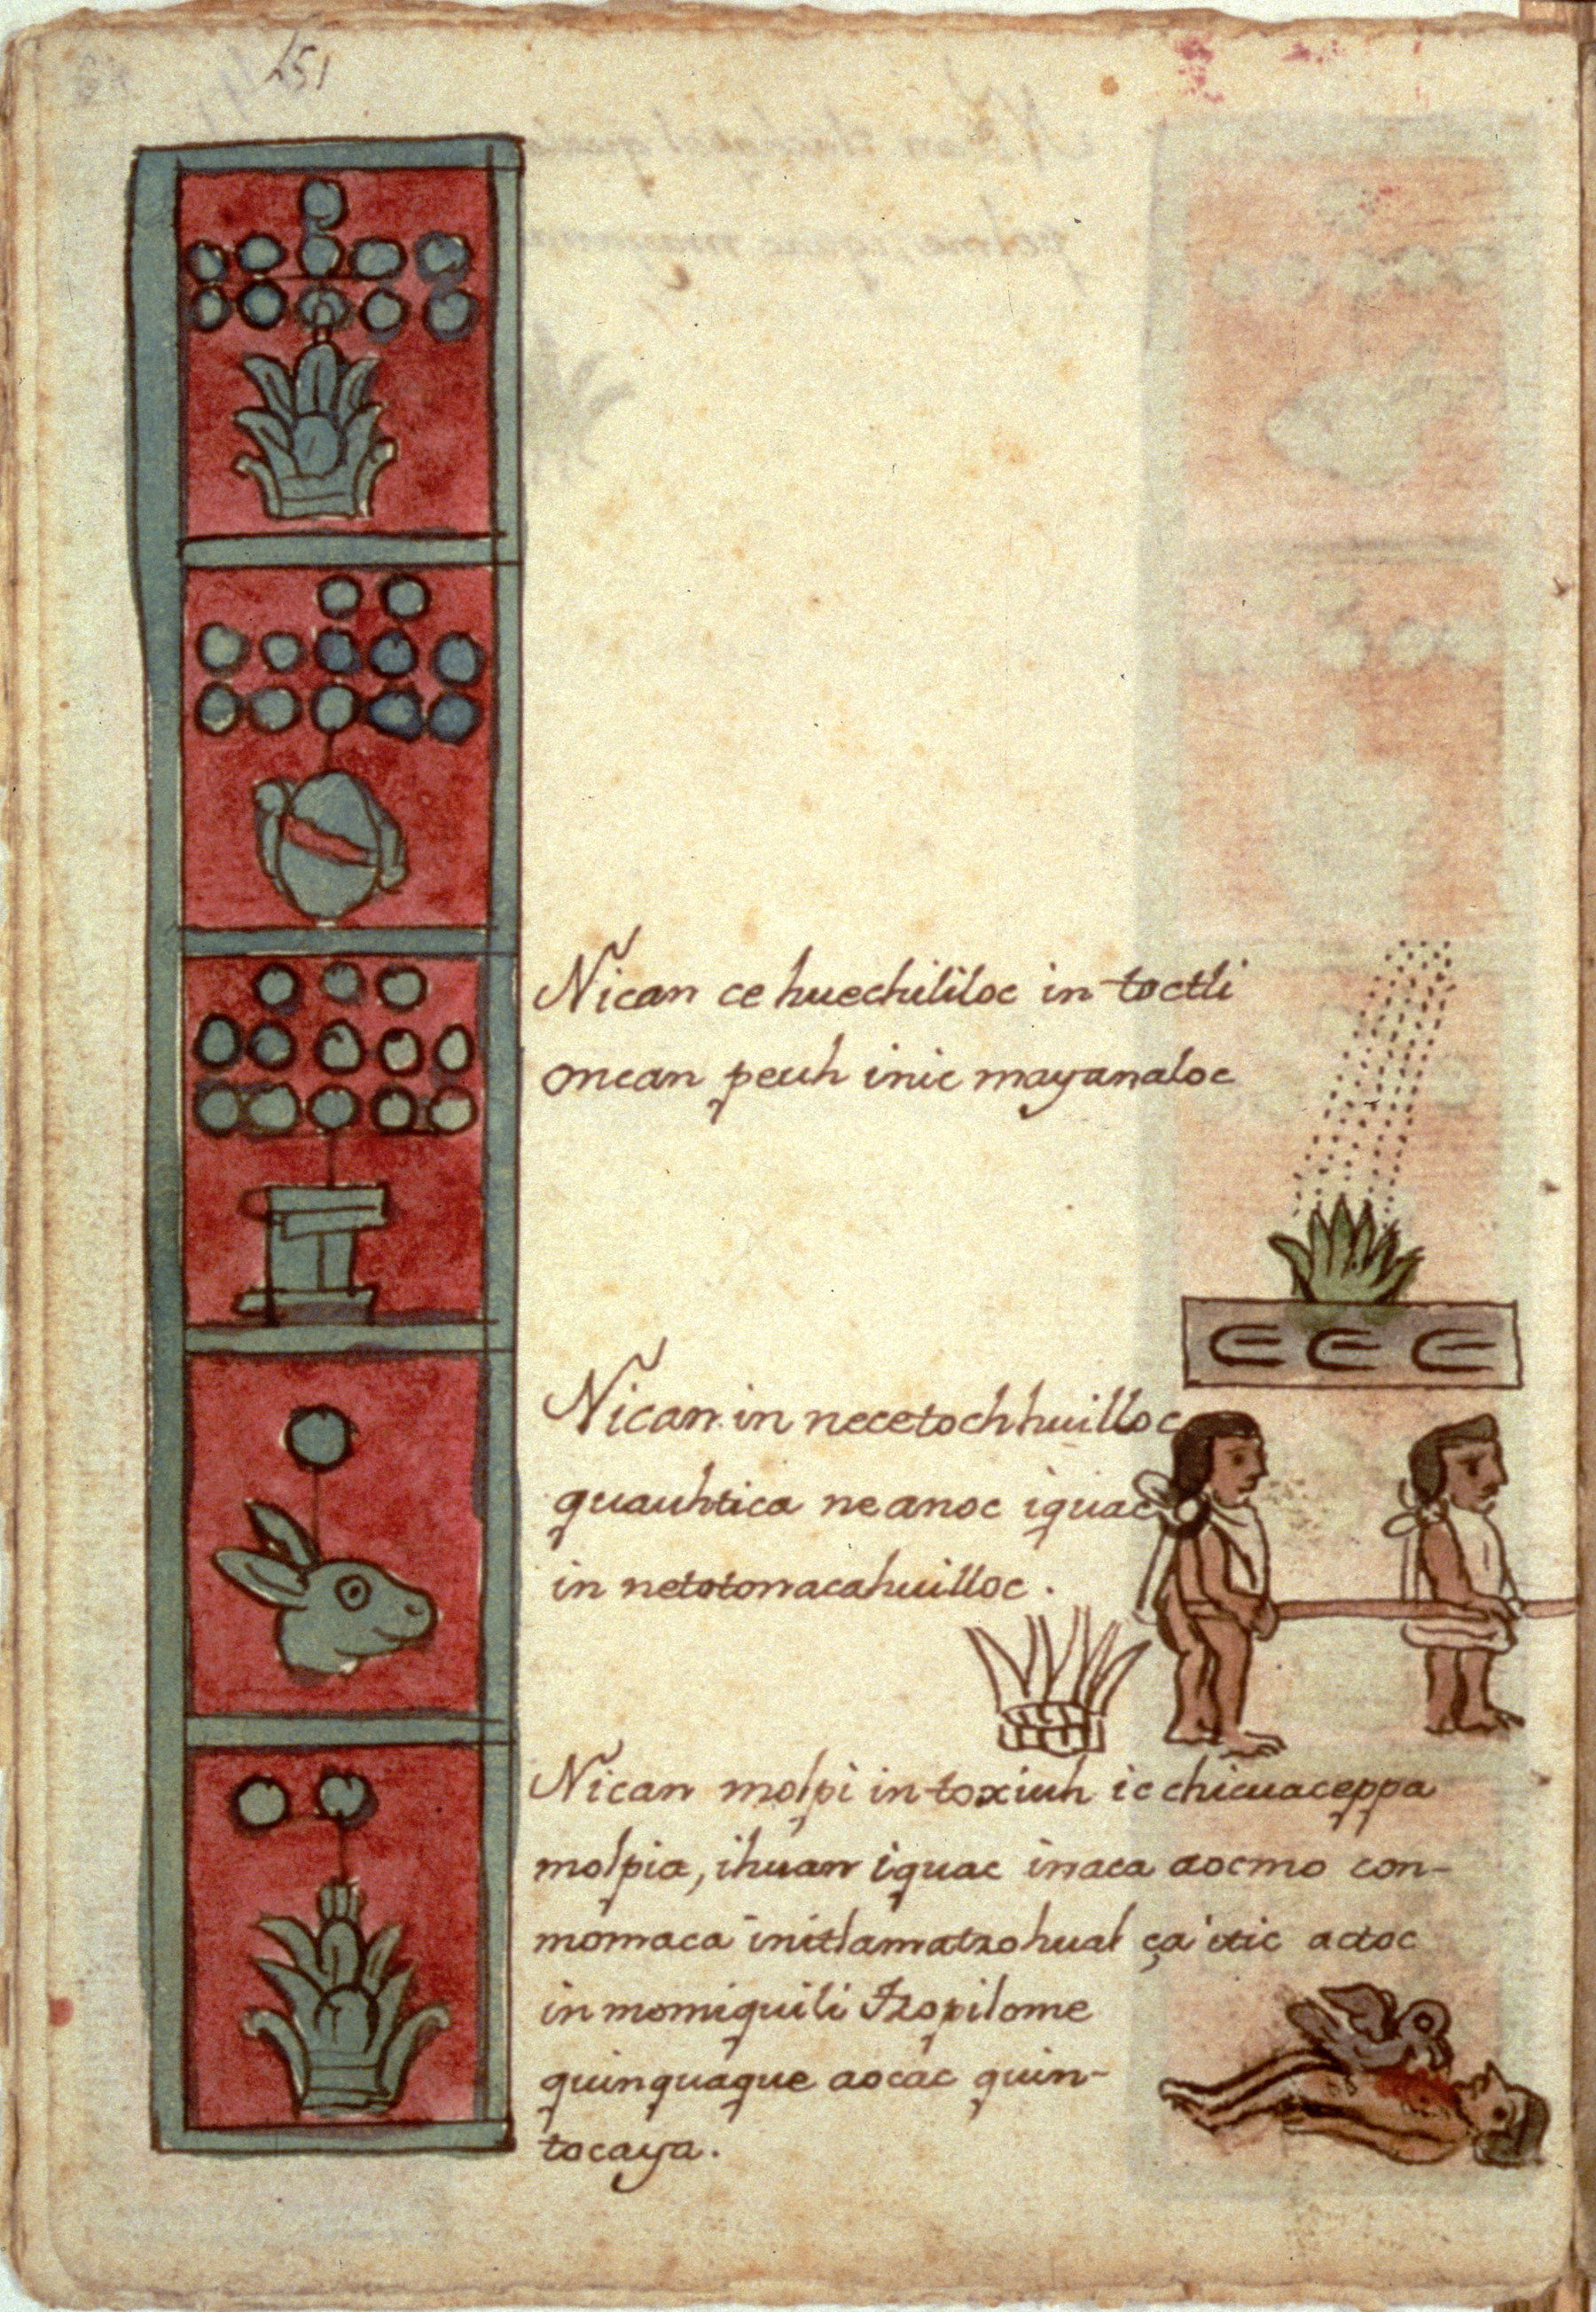 251
Nican ce huechililoc in toctli
oncan peuh inic mayanaloc
Nican in necetochhuilloc
quauhtica neanoc iquac
in netotonacahuilloc.
Nican molpi in toxiuh ic chicuaceppa
molpia, ihuan iquac inaca aocmo con-
momaca initlamatzohual ça itic actoc
in momiquili Tzopilome
quinquaque aocac quin-
tocaya.